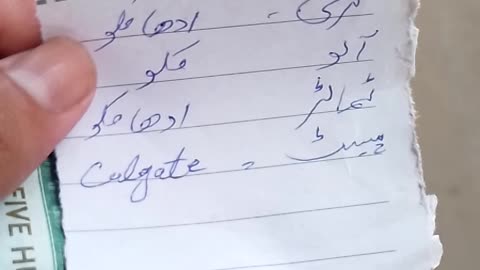 توری - ادھا کلو
آلو کلو
ٹماٹر ادھا کلو
پیسٹ = Colgate
FIVE H